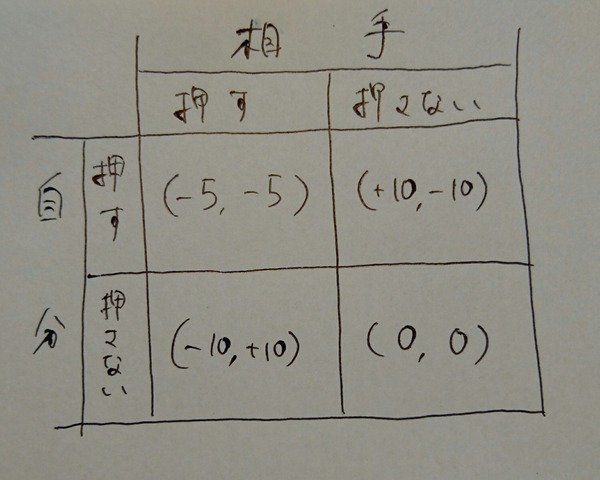 相 手
押す 押さない
自分
押す (-5, -5) (+10, -10)
押さない (-10, +10) (0, 0)